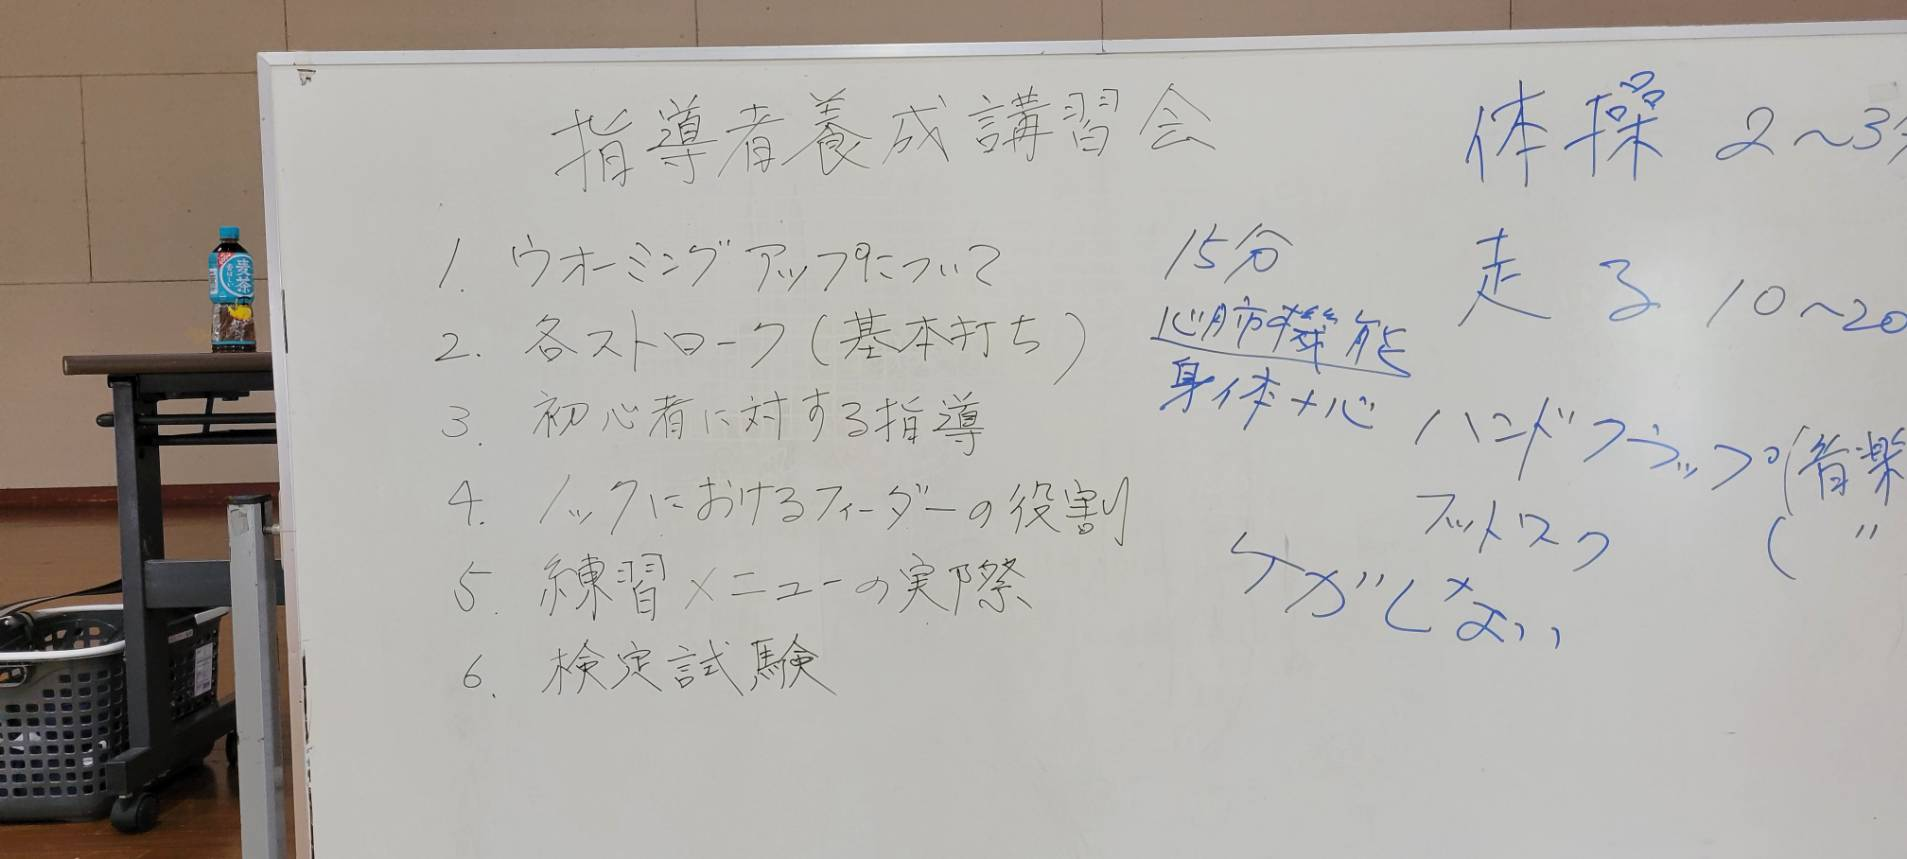 指導者養成講習会
1. ウオーミングアップについて
2. 各ストローク(基本打ち)
3. 初心者に対する指導
4. ノックにおけるフィーダーの役割
5. 練習メニューの実際
6. 検定試験
15分
心肺機能
身体+心
ケガしない
体操 2〜3分
走る 10〜20
ハンドクラップ(音楽
フットワーク
( 〃
麦茶